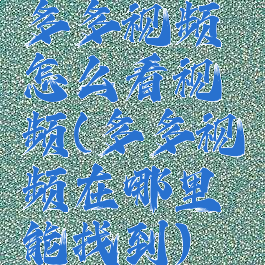 多多视频
怎么看视
频(多多视
频在哪里
能找到)